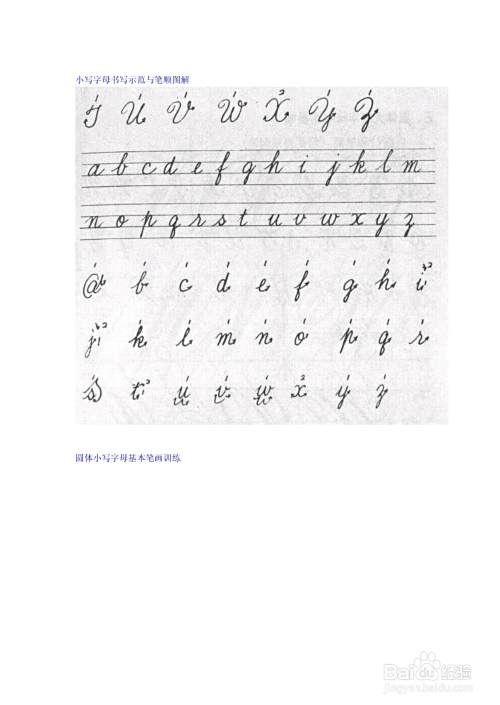 小写字母书写示范与笔顺图解
T U V W X Y Z
a b c d e f g h i j k l m
n o p q r s t u v w x y z
a b c d e f g h i
j k l m n o p q r
s t u v w x y z
圆体小写字母基本笔画训练
Baidu经验
jingyan.baidu.com